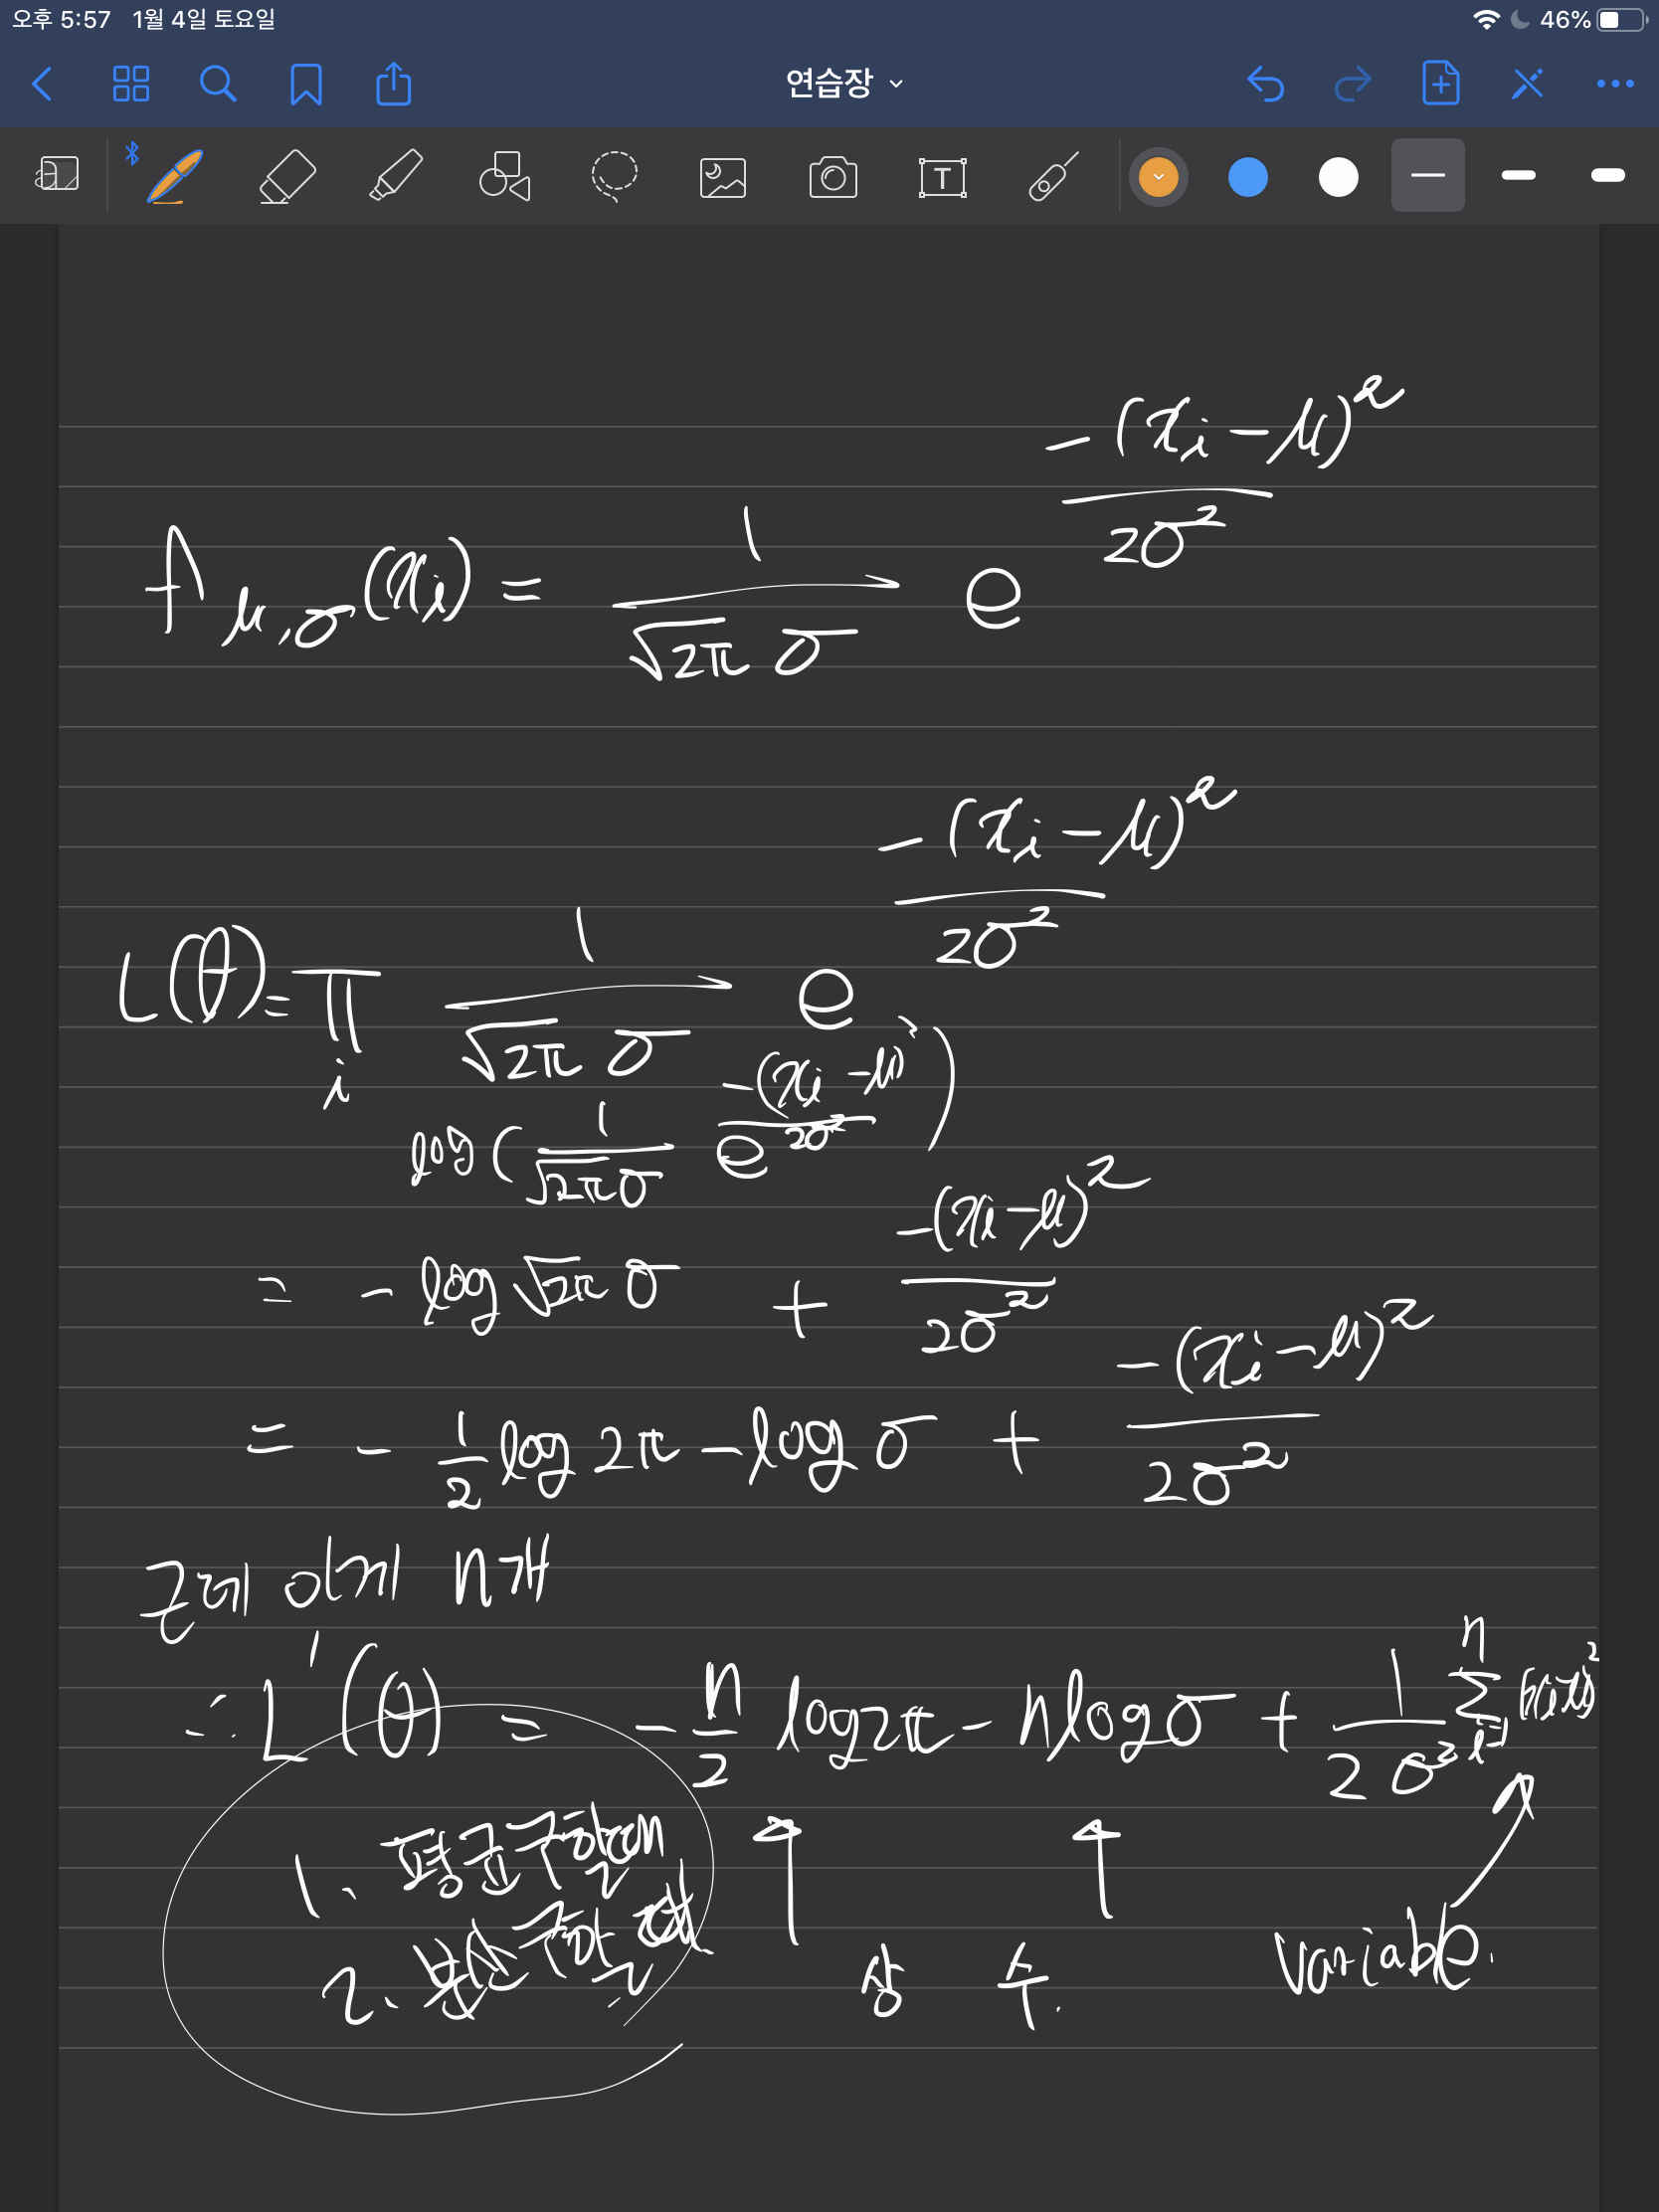 오후 5:57 1월 4일 토요일 46%
연습장
T
f μ,σ (xi) = 1/(√2π σ) e^(-(xi-μ)²/(2σ²))
L(θ) = ∏ i 1/(√2π σ) e^(-(xi-μ)²/(2σ²))
log ( 1/(√2π σ) e^(-(xi-μ)²/(2σ²)) )
= - log √2π σ + -(xi-μ)²/(2σ²)
= - 1/2 log 2π - log σ + -(xi-μ)²/(2σ²)
이게 n개
∴ L'(θ) = -n/2 log 2π - n log σ + 1/(2σ²) Σ i=1 n
1. 평균구할
2. 분산구할
상 수.
variable.